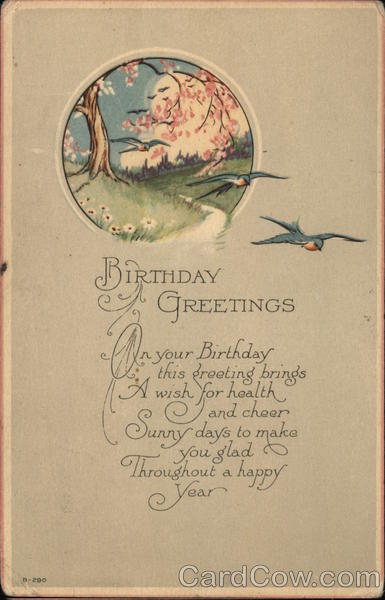 BIRTHDAY
GREETINGS
On your Birthday
this greeting brings
A wish for health
and cheer
Sunny days to make
you glad
Throughout a happy
Year
B-290
CardCow.com